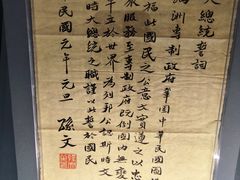 大總統誓詞
滿洲專制政府鞏固中華民國圖
福此國民之公意文實遵之以忠
服務至專制政府既倒國內無變
卓立於世界為列邦公認斯時文
時大總統之職謹以此誓於國民
民國元年元旦
孫文